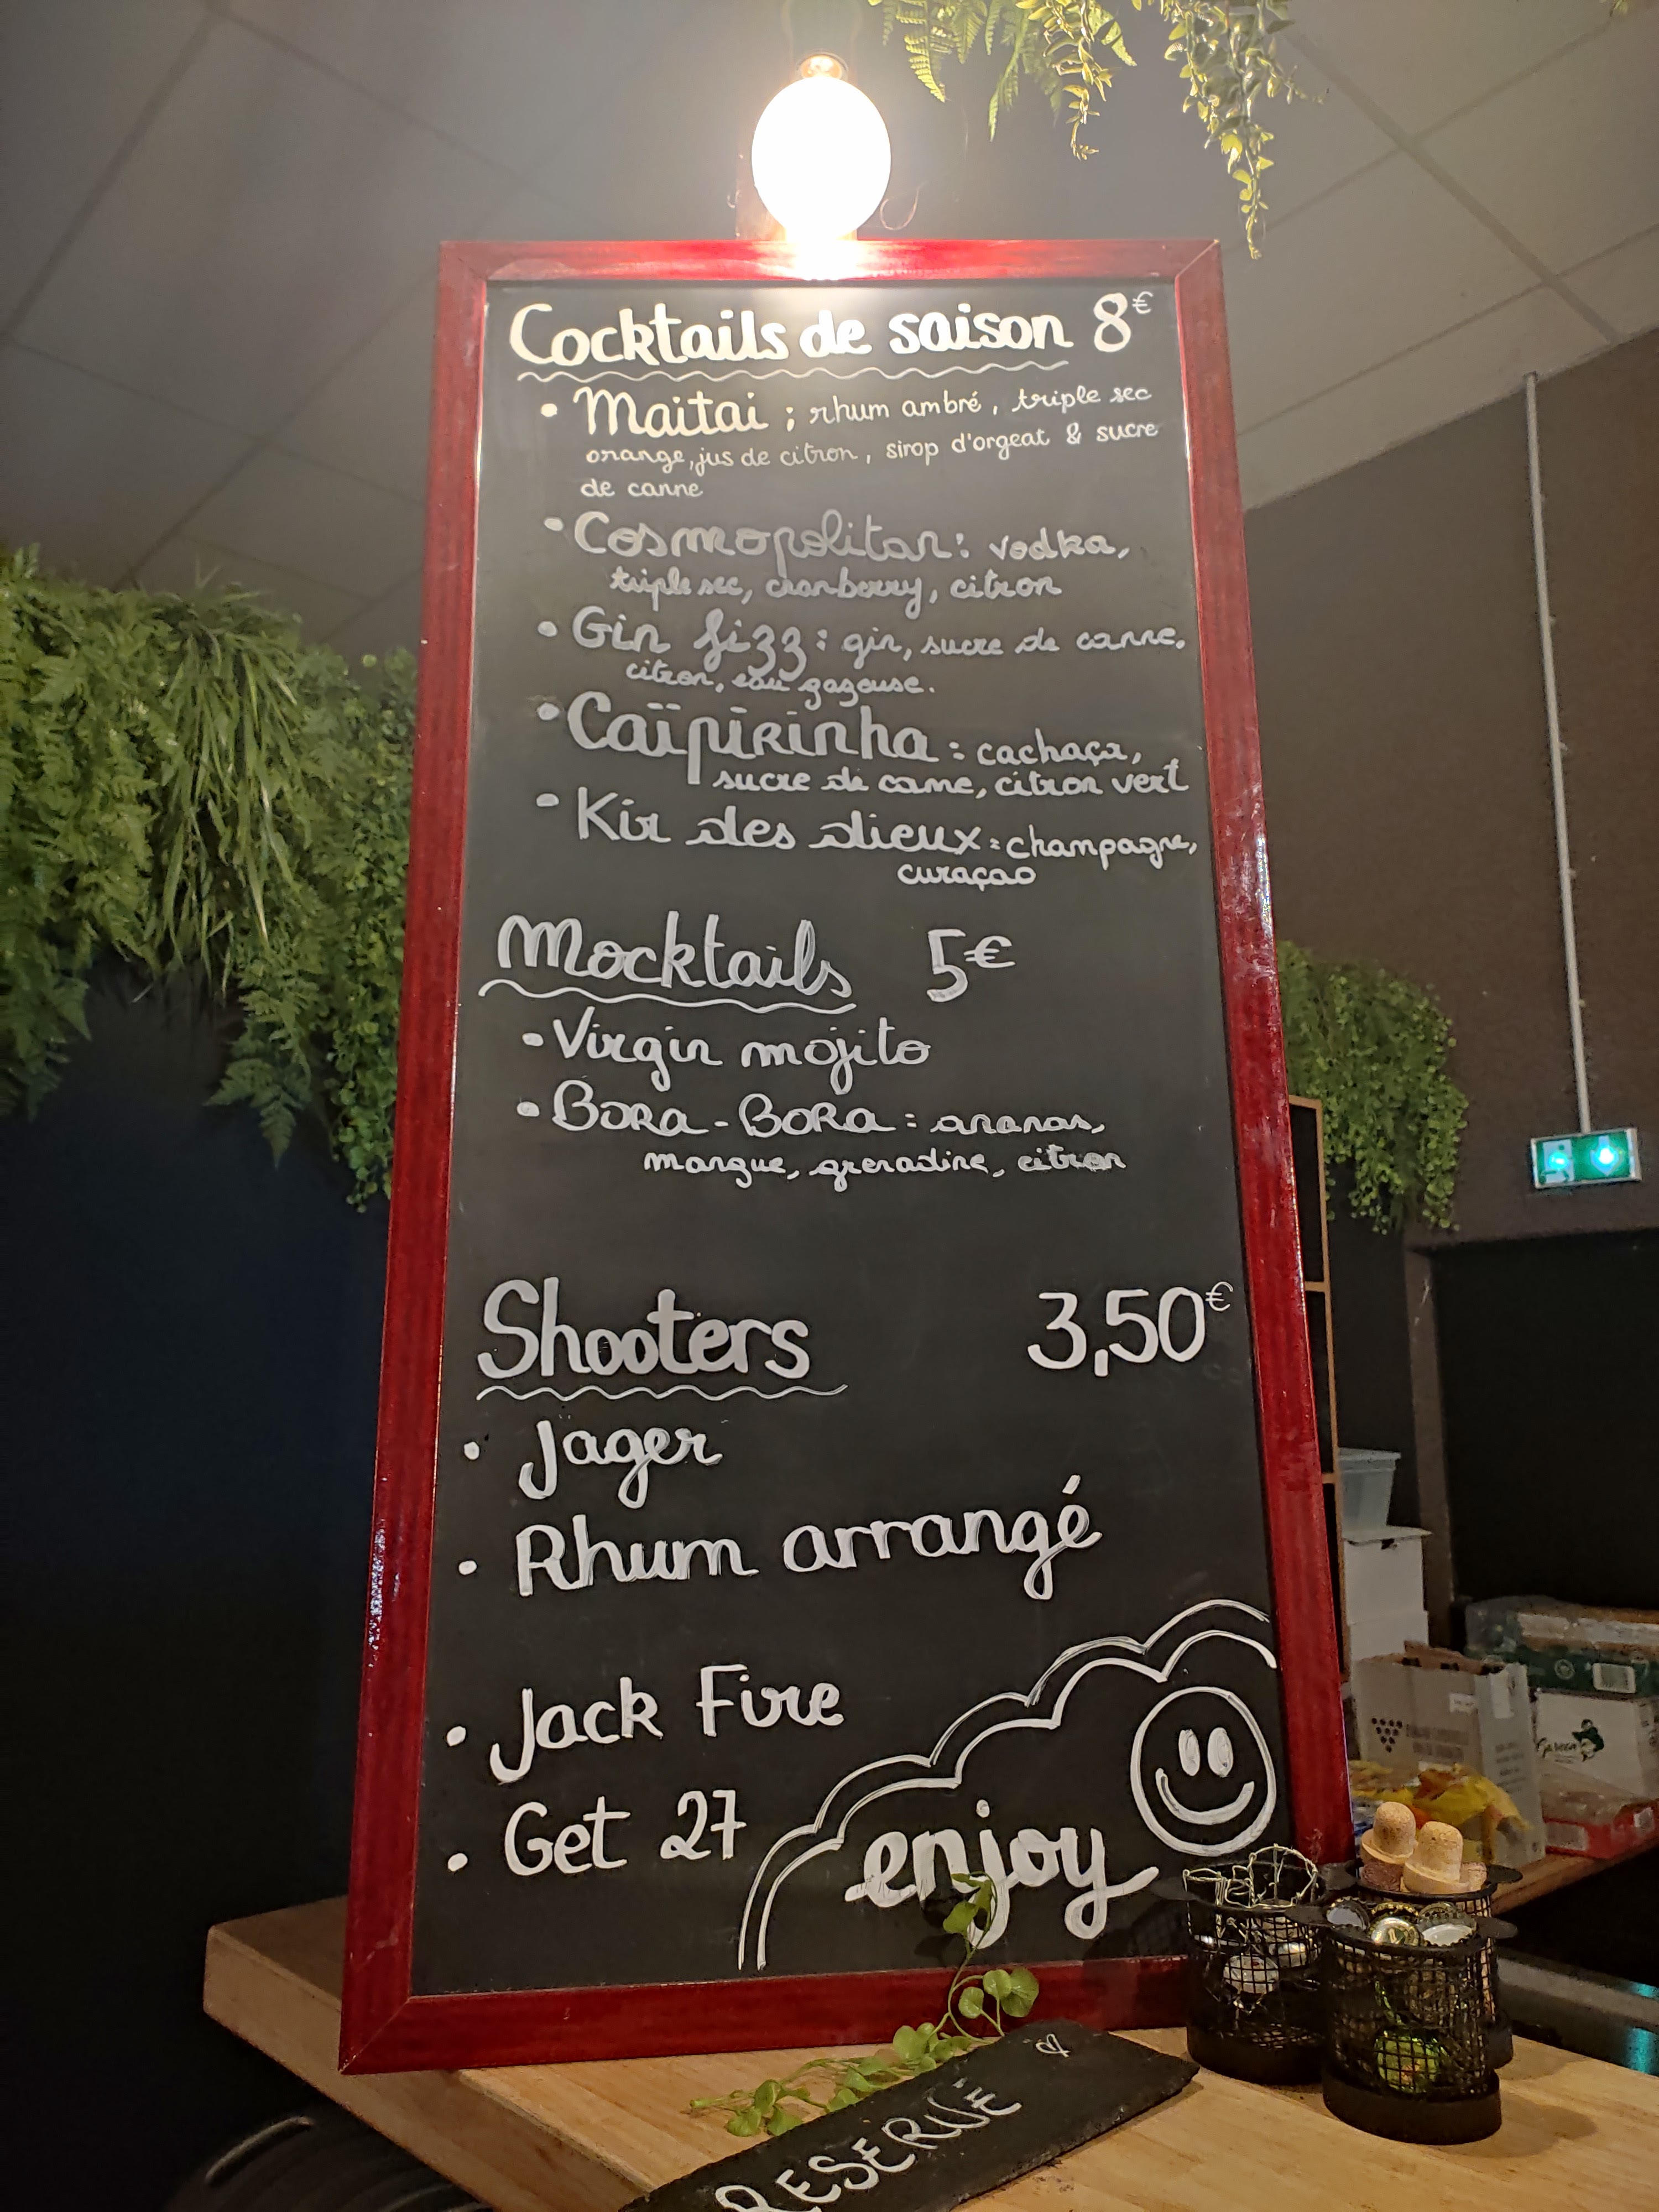 Cocktails de saison 8€
• Maitai ; rhum ambré, triple sec
orange, jus de citron, sirop d'orgeat & sucre
de canne
• Cosmopolitan : vodka,
triple sec, cranberry, citron
• Gin fizz : gin, sucre de canne,
citron, eau gazeuse.
• Caïpirinha : cachaça,
sucre de canne, citron vert
• Kir des dieux : champagne,
curaçao
Mocktails 5€
• Virgin mojito
• Bora-Bora : ananas,
mangue, grenadine, citron
Shooters 3,50€
• Jager
• Rhum arrangé
• Jack Fire
• Get 27
enjoy
RESERVÉ